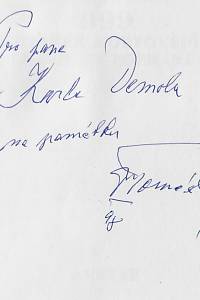 Pro pana
Karla Demela
na památku